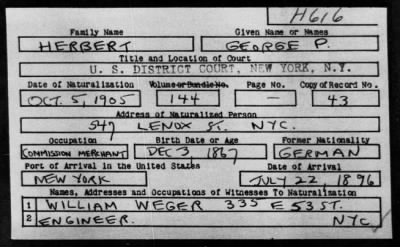 H616
Family Name Given Name or Names
HERBERT GEORGE P.
Title and Location of Court
U. S. DISTRICT COURT, NEW YORK, N.Y.
Date of Naturalization Volume or Bundle No. Page No. Copy of Record No.
OCT. 5, 1905 144 — 43
Address of Naturalized Person
547 LENOX ST. NYC.
Occupation Birth Date or Age Former Nationality
COMMISSION MERCHANT DEC 3, 1867 GERMAN
Port of Arrival in the United States Date of Arrival
NEW YORK JULY 22 1896
Names, Addresses and Occupations of Witnesses To Naturalization
1 WILLIAM WEGER 335 E 53 ST.
2 ENGINEER. NYC